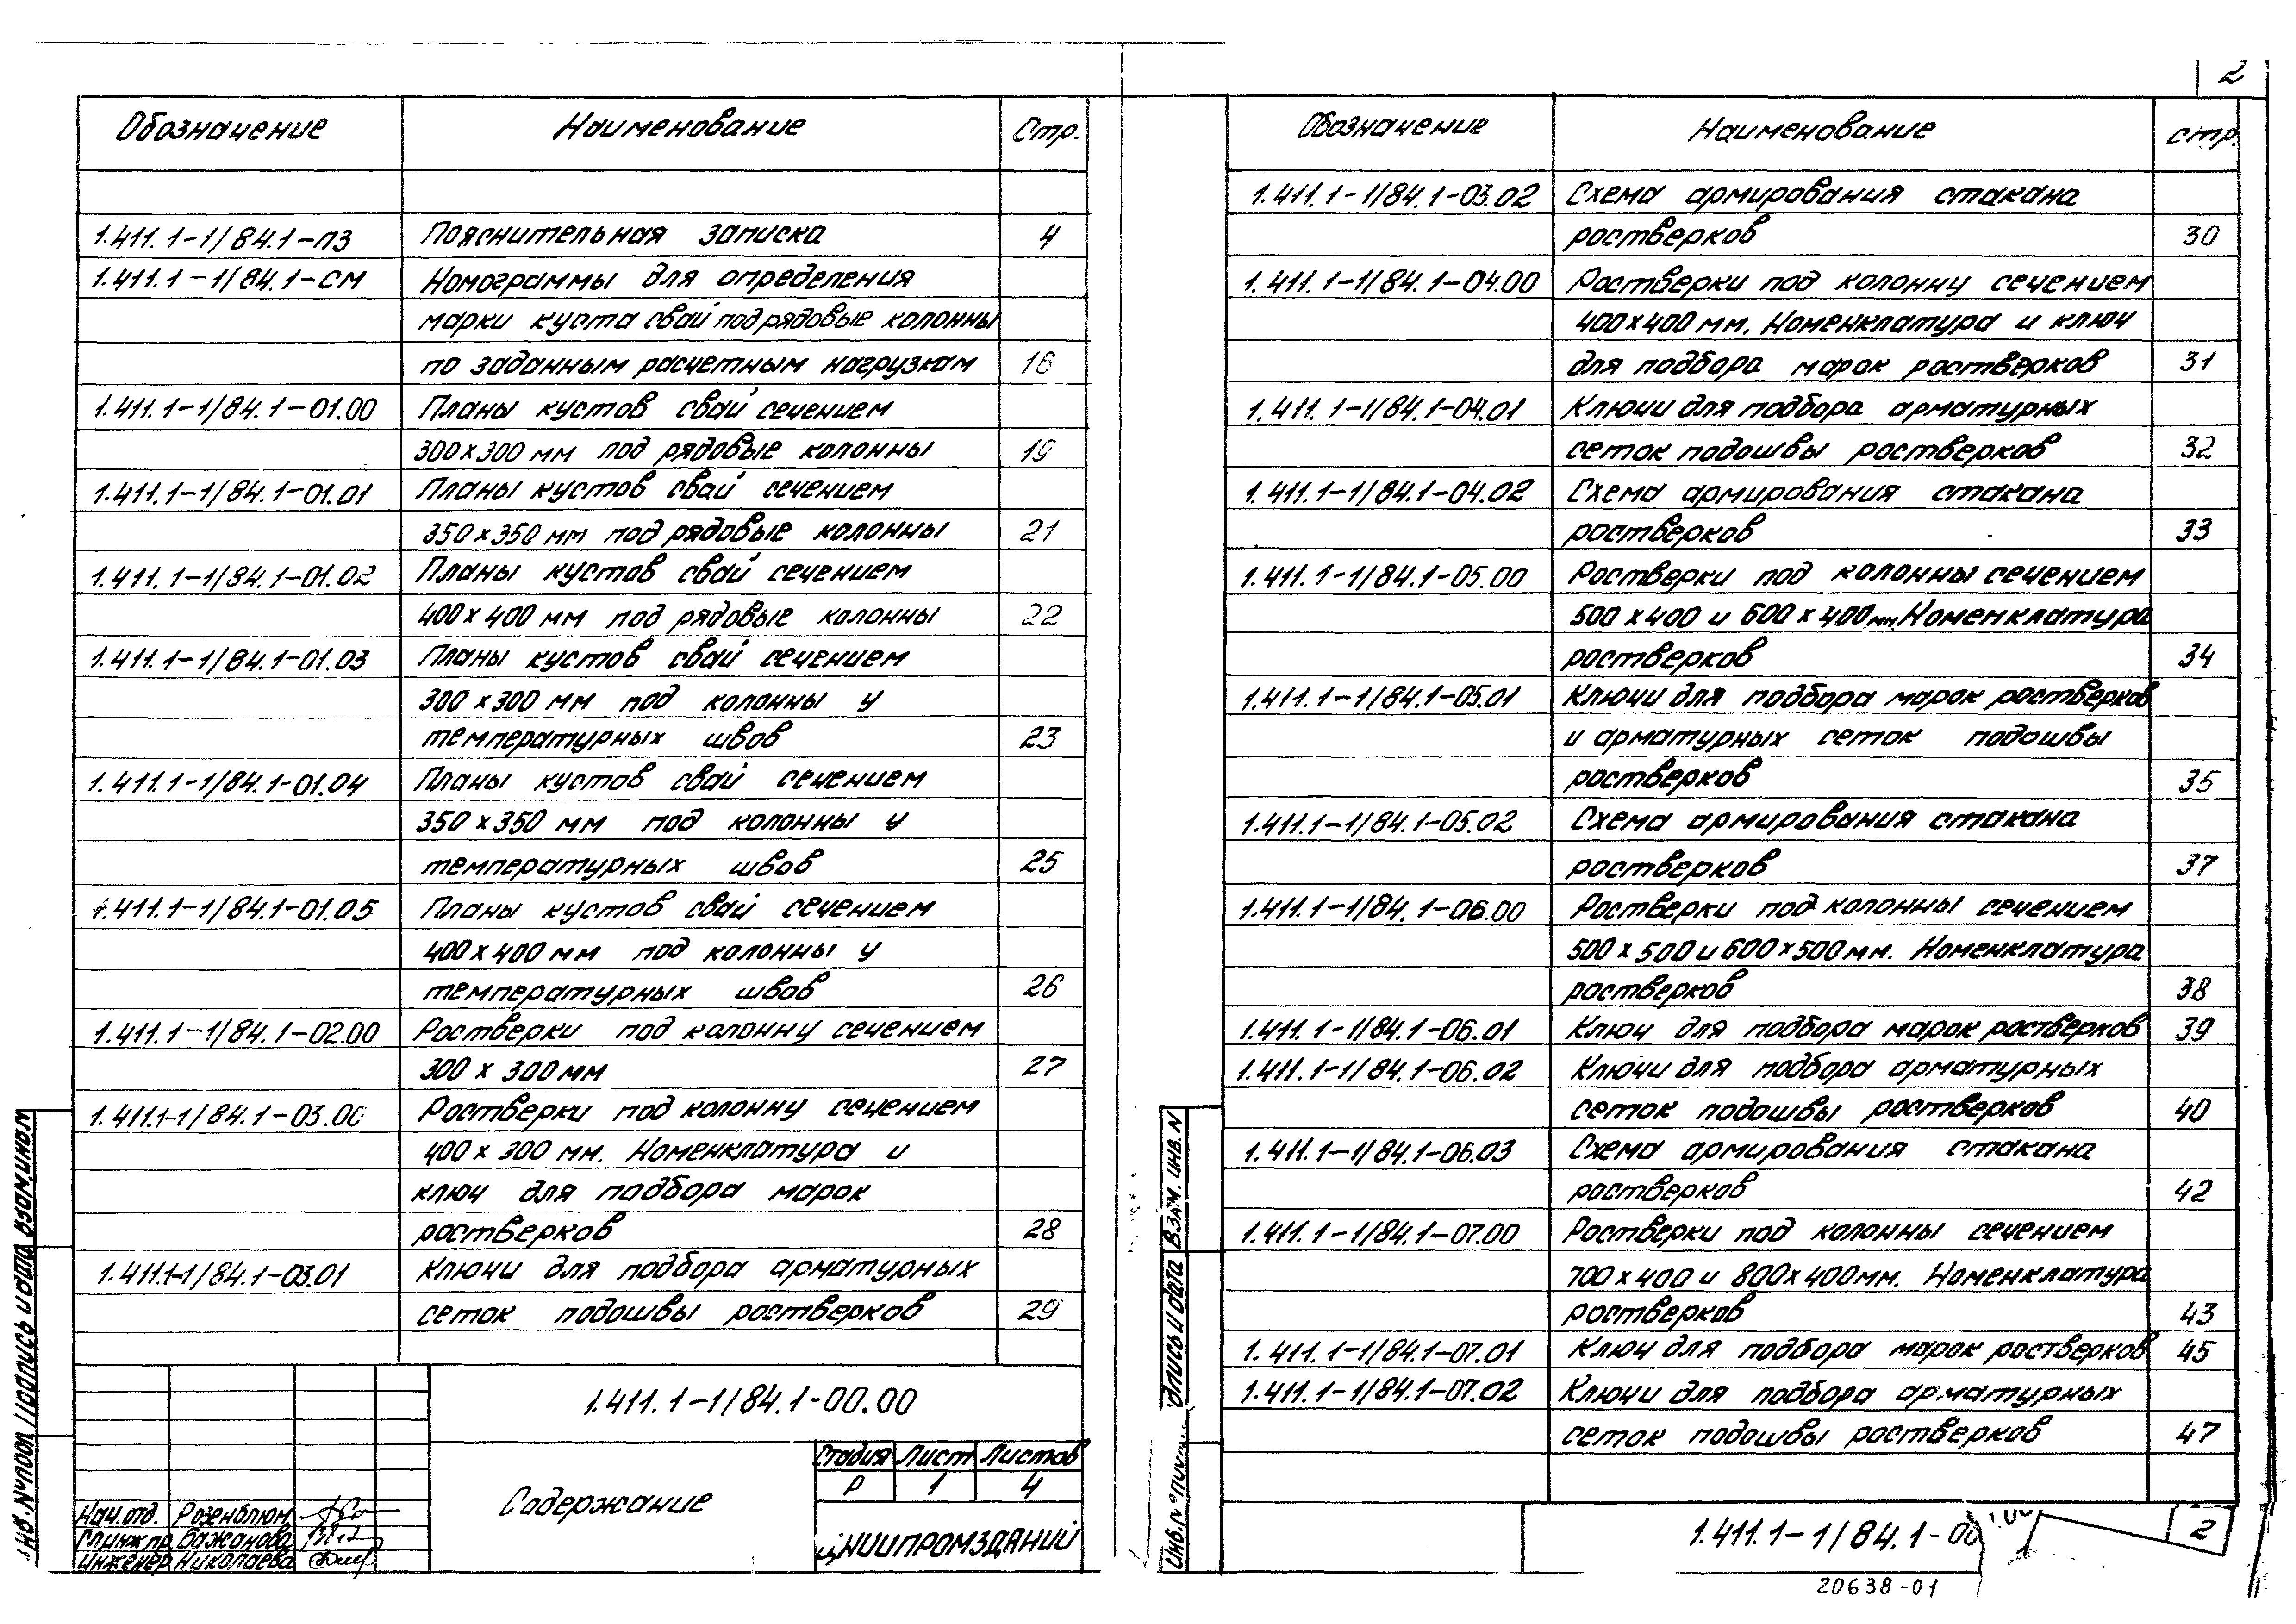 2
Обозначение Наименование Стр.
1.411.1-1/84.1-ПЗ Пояснительная записка 4
1.411.1-1/84.1-СМ Номограммы для определения
марки куста свай под рядовые колонны
по заданным расчетным нагрузкам 16
1.411.1-1/84.1-01.00 Планы кустов свай сечением
300х300 мм под рядовые колонны 19
1.411.1-1/84.1-01.01 Планы кустов свай сечением
350х350 мм под рядовые колонны 21
1.411.1-1/84.1-01.02 Планы кустов свай сечением
400х400 мм под рядовые колонны 22
1.411.1-1/84.1-01.03 Планы кустов свай сечением
300х300 мм под колонны у
температурных швов 23
1.411.1-1/84.1-01.04 Планы кустов свай сечением
350х350 мм под колонны у
температурных швов 25
1.411.1-1/84.1-01.05 Планы кустов свай сечением
400х400 мм под колонны у
температурных швов 26
1.411.1-1/84.1-02.00 Ростверки под колонну сечением
300х300 мм 27
1.411.1-1/84.1-03.00 Ростверки под колонну сечением
400х300 мм. Номенклатура и
ключ для подбора марок
ростверков 28
1.411.1-1/84.1-03.01 Ключи для подбора арматурных
сеток подошвы ростверков 29
1.411.1-1/84.1-00.00
Содержание
Стадия Лист Листов
Р 1 4
ЦНИИПРОМЗДАНИЙ
Нач.отд. Розенблюм
Гл.инж.пр. Бажанова
Инженер Николаева
Инв.№подл Подпись и дата Взам.инв.№
Обозначение Наименование стр.
1.411.1-1/84.1-03.02 Схема армирования стакана
ростверков 30
1.411.1-1/84.1-04.00 Ростверки под колонну сечением
400х400 мм. Номенклатура и ключ
для подбора марок ростверков 31
1.411.1-1/84.1-04.01 Ключи для подбора арматурных
сеток подошвы ростверков 32
1.411.1-1/84.1-04.02 Схема армирования стакана
ростверков 33
1.411.1-1/84.1-05.00 Ростверки под колонны сечением
500х400 и 600х400 мм. Номенклатура
ростверков 34
1.411.1-1/84.1-05.01 Ключи для подбора марок ростверков
и арматурных сеток подошвы
ростверков 35
1.411.1-1/84.1-05.02 Схема армирования стакана
ростверков 37
1.411.1-1/84.1-06.00 Ростверки под колонны сечением
500х500 и 600х500 мм. Номенклатура
ростверков 38
1.411.1-1/84.1-06.01 Ключ для подбора марок ростверков 39
1.411.1-1/84.1-06.02 Ключи для подбора арматурных
сеток подошвы ростверков 40
1.411.1-1/84.1-06.03 Схема армирования стакана
ростверков 42
1.411.1-1/84.1-07.00 Ростверки под колонны сечением
700х400 и 800х400 мм. Номенклатура
ростверков 43
1.411.1-1/84.1-07.01 Ключ для подбора марок ростверков 45
1.411.1-1/84.1-07.02 Ключи для подбора арматурных
сеток подошвы ростверков 47
1.411.1-1/84.1-00 2
20638-01
дпись и дата Взам.инв.N